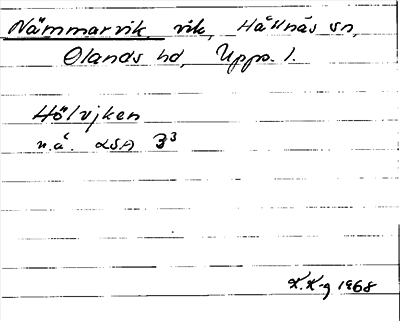 Nämmarvik, vik, Hållnäs sn,
Olands hd, Upps. l.
Hölvjken
n.ä. LSA B³
K.K-g 1968